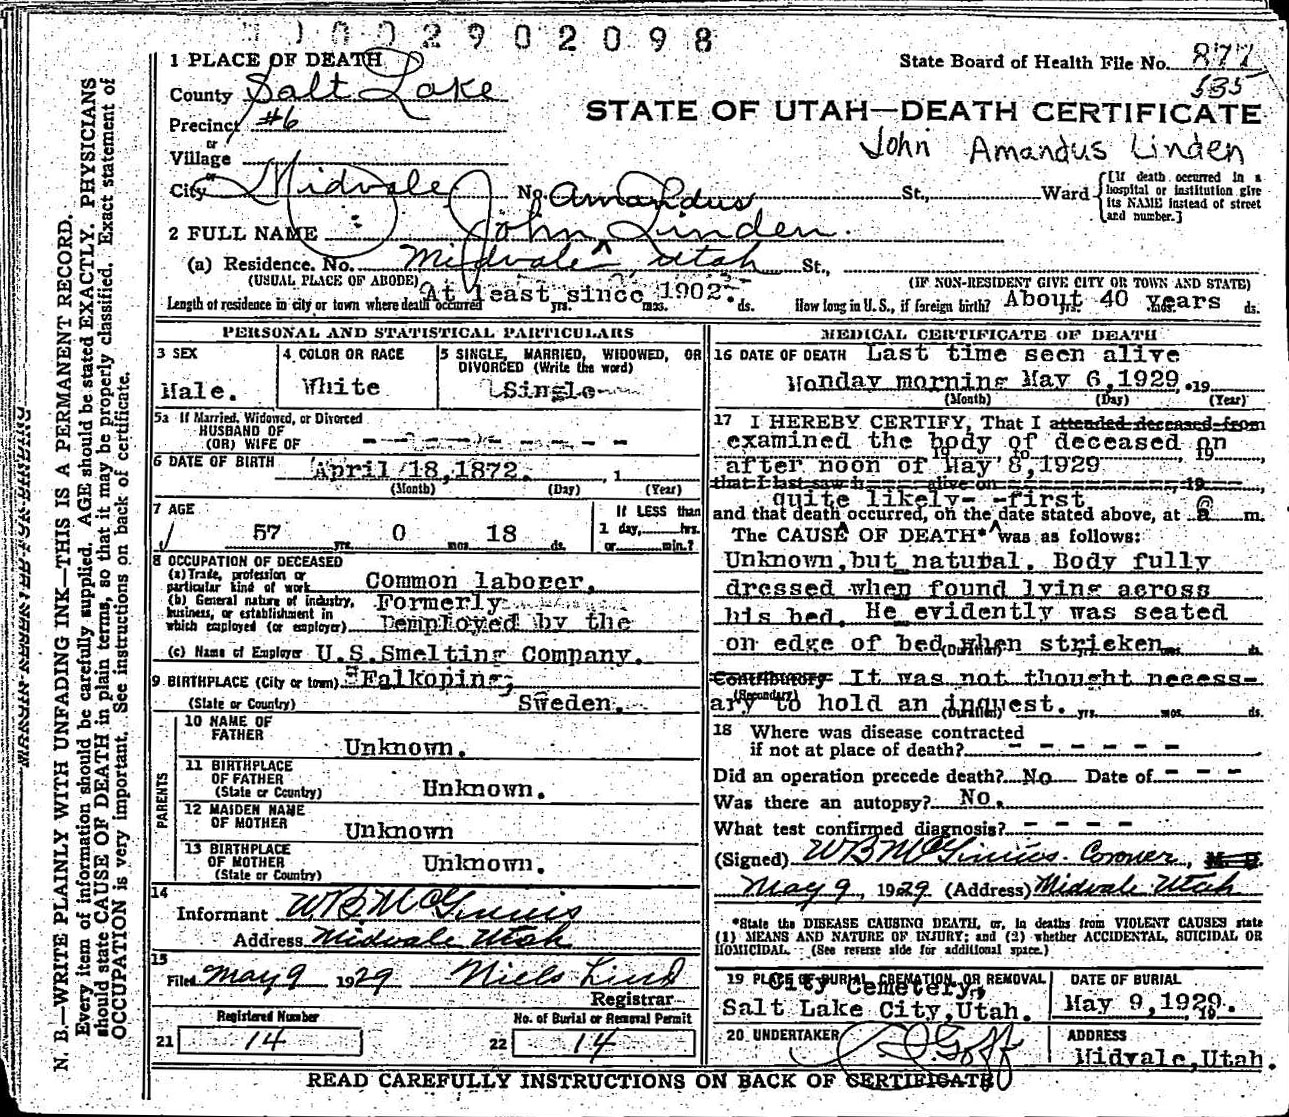 0002902098
1 PLACE OF DEATH
County Salt Lake
Precinct #6
or
Village
or
City Midvale No. St., Ward {[If death occurred in a hospital or institution give its NAME instead of street and number.]
State Board of Health File No. 877
535
STATE OF UTAH—DEATH CERTIFICATE
John Amandus Linden
Amandus
2 FULL NAME John ^ Linden.
(a) Residence. No. Midvale Utah St.,
(USUAL PLACE OF ABODE) (IF NON-RESIDENT GIVE CITY OR TOWN AND STATE)
Length of residence in city or town where death occurred At least since 1902. yrs. mos. ds. How long in U. S., if foreign birth? About 40 years yrs. mos. ds.
PERSONAL AND STATISTICAL PARTICULARS
3 SEX
Male.
4 COLOR OR RACE
White
5 SINGLE, MARRIED, WIDOWED, OR DIVORCED (Write the word)
Single
5a If Married, Widowed, or Divorced
HUSBAND OF
(OR) WIFE OF
6 DATE OF BIRTH April 18,1872. , 1
(Month) (Day) (Year)
7 AGE
57 yrs. 0 mos. 18 ds.
If LESS than
1 day, hrs.
or min.?
8 OCCUPATION OF DECEASED
(a) Trade, profession or particular kind of work Common laborer.
(b) General nature of industry, business, or establishment in which employed (or employer) Formerly employed by the
(c) Name of Employer U.S.Smelting Company.
9 BIRTHPLACE (City or town) Falkoping,
(State or Country) Sweden.
PARENTS
10 NAME OF FATHER Unknown.
11 BIRTHPLACE OF FATHER (State or Country) Unknown.
12 MAIDEN NAME OF MOTHER Unknown
13 BIRTHPLACE OF MOTHER (State or Country) Unknown.
14
Informant W B McGinnis
Address Midvale Utah
15
Filed May 9 1929 Niels Lind
Registrar
Registered Number
21 14
No. of Burial or Removal Permit
22 14
MEDICAL CERTIFICATE OF DEATH
16 DATE OF DEATH Last time seen alive
Monday morning May 6,1929. 19
(Month) (Day) (Year)
17 I HEREBY CERTIFY, That I attended deceased from
examined the body of deceased on
19 to 19
after noon of May 8,1929
that I last saw h alive on , 19 ,
quite likely- -first
and that death occurred, on the date stated above, at a m.
The CAUSE OF DEATH* was as follows:
Unknown,but natural. Body fully
dressed when found lying across
his bed. He evidently was seated
on edge of bed when stricken
(Duration) ds.
Contributory It was not thought necess-
(Secondary)
ary to hold an inquest.
(Duration) yrs. mos. ds.
18 Where was disease contracted
if not at place of death? - - - - - -
Did an operation precede death? No Date of - - -
Was there an autopsy? No.
What test confirmed diagnosis? - - - -
(Signed) W B McGinnis Coroner, M. D.
May 9, 1929 (Address) Midvale Utah
*State the DISEASE CAUSING DEATH, or, in deaths from VIOLENT CAUSES state
(1) MEANS AND NATURE OF INJURY; and (2) whether ACCIDENTAL, SUICIDAL OR
HOMICIDAL. (See reverse side for additional space.)
19 PLACE OF BURIAL, CREMATION, OR REMOVAL
City Cemetery,
Salt Lake City,Utah.
DATE OF BURIAL
May 9,1929. 19
20 UNDERTAKER Goff
ADDRESS
Midvale,Utah.
READ CAREFULLY INSTRUCTIONS ON BACK OF CERTIFICATE
N. B.—WRITE PLAINLY WITH UNFADING INK—THIS IS A PERMANENT RECORD.
Every item of information should be carefully supplied. AGE should be stated EXACTLY. PHYSICIANS
should state CAUSE OF DEATH in plain terms, so that it may be properly classified. Exact statement of
OCCUPATION is very important. See instructions on back of certificate.